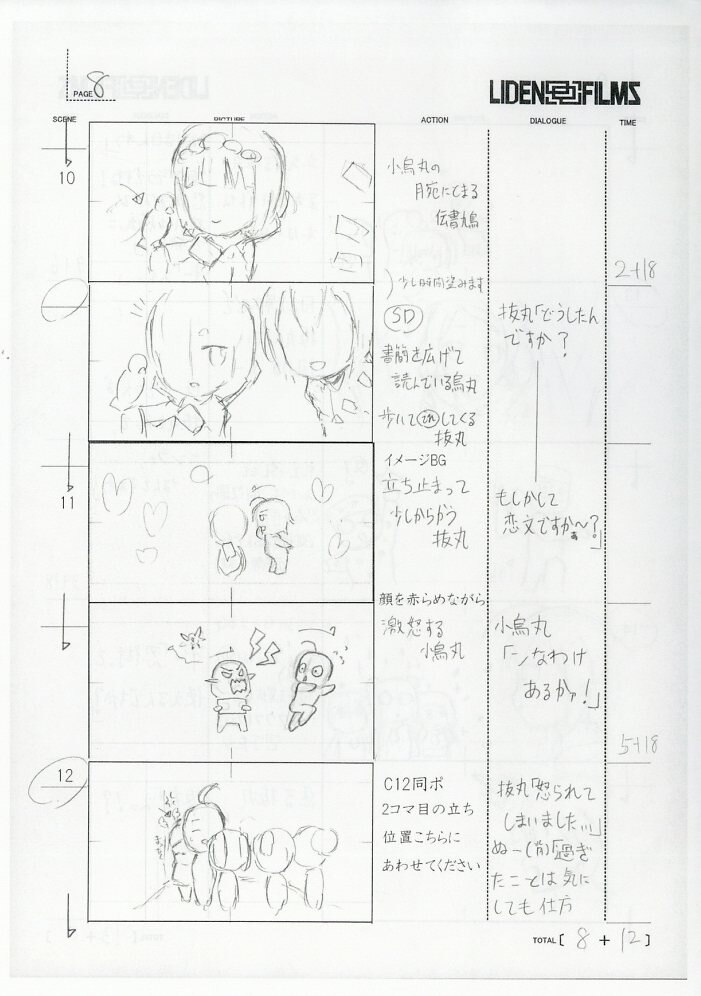 PAGE 8
LIDENFILMS
SCENE
PICTURE
ACTION
DIALOGUE
TIME
10
小烏丸の
腕にとまる
伝書鳩
2+18
少し時間盗みます
SD
書簡を広げて
読んでいる烏丸
歩いて
してくる
抜丸
抜丸「どうしたん
ですか?
11
イメージBG
立ち止まって
少しからかう
抜丸
もしかして
恋文ですかぁ〜?」
顔を赤らめながら
激怒する
小烏丸
小烏丸
「ンなわけ
あるかァ!」
5+18
12
C12同ポ
2コマ目の立ち
位置こちらに
あわせてください
抜丸「怒られて
しまいました…」
ぬー(削)「過ぎ
たことは気に
しても仕方
TOTAL [ 8 + 12 ]